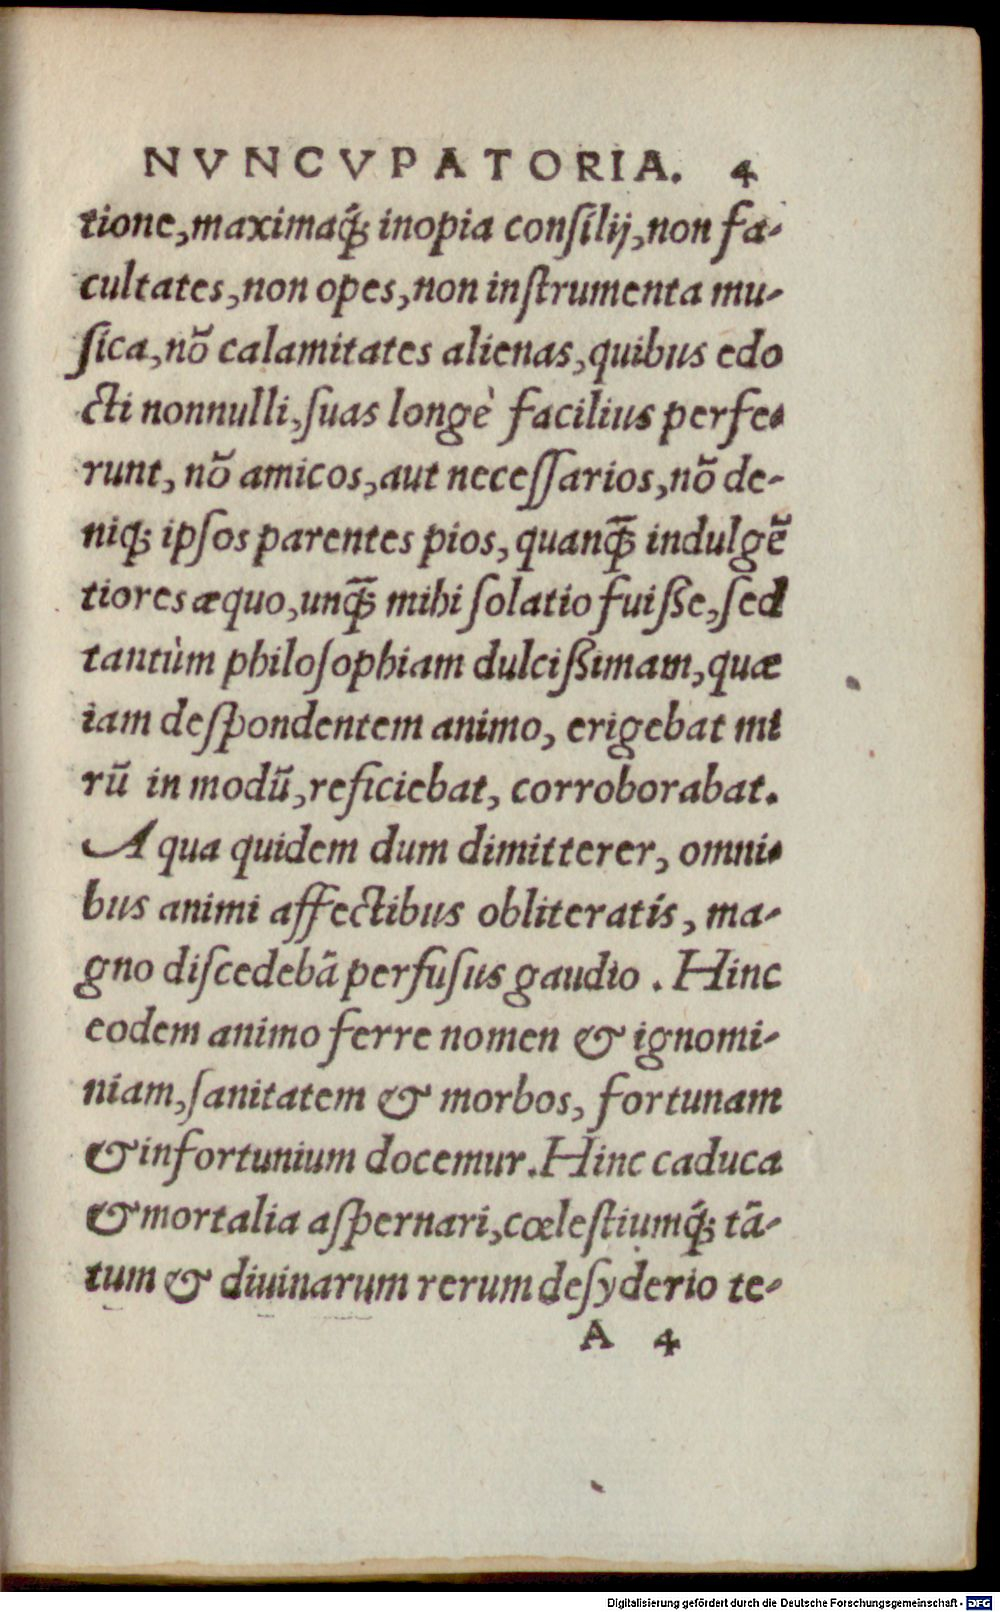 NVNCVPATORIA. 4
tione, maximaq́; inopia consilij, non fa-
cultates, non opes, non instrumenta mu-
sica, nõ calamitates alienas, quibus edo
cti nonnulli, suas longè facilius perfe-
runt, nõ amicos, aut necessarios, nõ de-
niq; ipsos parentes pios, quanq̃; indulgẽ
tiores æquo, unq̃; mihi solatio fuisse, sed
tantùm philosophiam dulcissimam, quæ
iam despondentem animo, erigebat mi
rũ in modũ, reficiebat, corroborabat.
A qua quidem dum dimitterer, omni-
bus animi affectibus obliteratis, ma-
gno discedebã perfusus gaudio. Hinc
eodem animo ferre nomen & ignomi-
niam, sanitatem & morbos, fortunam
& infortunium docemur. Hinc caduca
& mortalia aspernari, cœlestiumq́; tã-
tum & diuinarum rerum desyderio te-
A 4
Digitalisierung gefördert durch die Deutsche Forschungsgemeinschaft - DFG